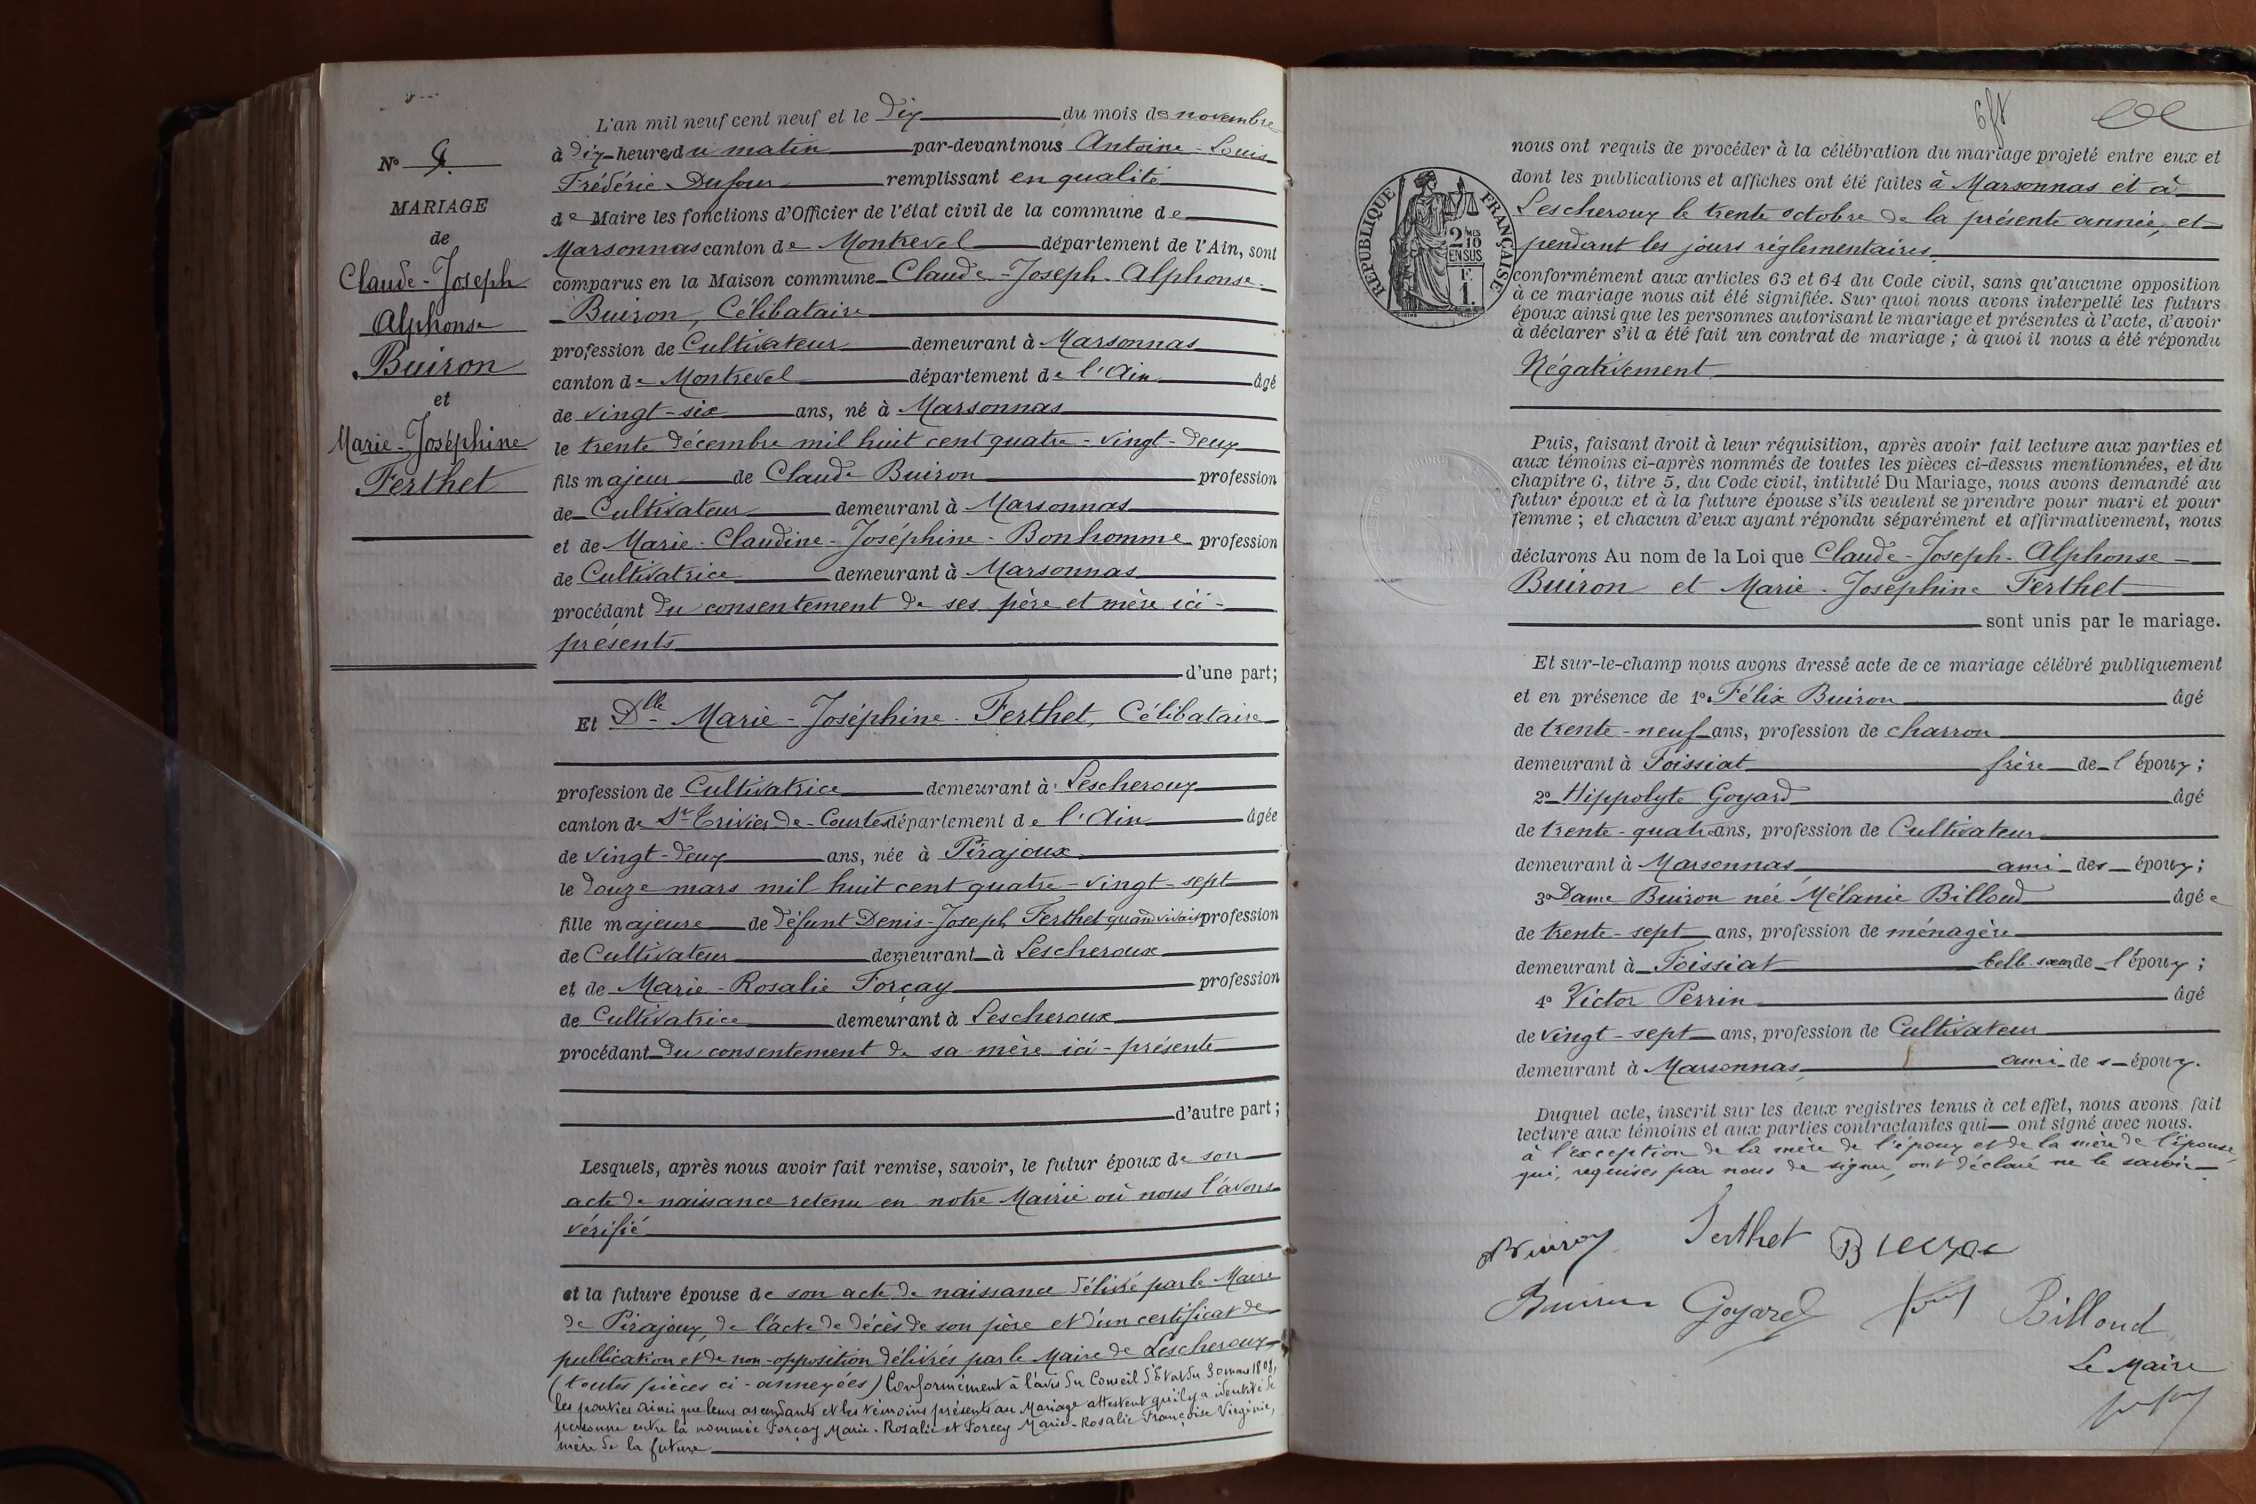 N° 9.
MARIAGE
de
Claude-Joseph
Alphonse
Buiron
et
Marie-Joséphine
Ferthet
L'an mil neuf cent neuf et le dix du mois de novembre
à dix heures du matin par-devant nous Antoine-Louis
Frédéric Dufour remplissant en qualité
de Maire les fonctions d'Officier de l'état civil de la commune de
Marsonnas canton de Montrevel département de l'Ain, sont
comparus en la Maison commune Claude-Joseph-Alphonse
Buiron, Célibataire
profession de Cultivateur demeurant à Marsonnas
canton de Montrevel département de l'Ain âgé
de vingt-six ans, né à Marsonnas
le trente décembre mil huit cent quatre-vingt-deux
fils majeur de Claude Buiron profession
de Cultivateur demeurant à Marsonnas
et de Marie-Claudine-Joséphine-Bonhomme profession
de Cultivatrice demeurant à Marsonnas
procédant du consentement de ses père et mère ici-
présents
d'une part;
Et Dlle Marie-Joséphine Ferthet, Célibataire
profession de Cultivatrice demeurant à Lescheroux
canton de St Trivier-de-Courtes département de l'Ain âgée
de vingt-deux ans, née à Pirajoux
le douze mars mil huit cent quatre-vingt-sept
fille majeure de défunt Denis-Joseph Ferthet quand vivait profession
de Cultivateur demeurant à Lescheroux
et de Marie-Rosalie Forçay profession
de Cultivatrice demeurant à Lescheroux
procédant du consentement de sa mère ici-présente
d'autre part;
Lesquels, après nous avoir fait remise, savoir, le futur époux de son
acte de naissance retenu en notre Mairie où nous l'avons
vérifié
et la future épouse de son acte de naissance délivré par le Maire
de Pirajoux, de l'acte de décès de son père et d'un certificat de
publication et de non-opposition délivrés par le Maire de Lescheroux
(toutes pièces ci-annexées) Conformément à l'avis du Conseil d'Etat du 30 mars 1808,
les parties ainsi que leurs ascendants et les témoins présents au Mariage attestent qu'il y a identité de
personne entre la nommée Forçay Marie-Rosalie et Forcey Marie-Rosalie Françoise Virginie,
mère de la future
RÉPUBLIQUE FRANÇAISE
2 MES 10
EN SUS
F.
1.
nous ont requis de procéder à la célébration du mariage projeté entre eux et
dont les publications et affiches ont été faites à Marsonnas et à
Lescheroux le trente octobre de la présente année, et
pendant les jours réglementaires.
conformément aux articles 63 et 64 du Code civil, sans qu'aucune opposition
à ce mariage nous ait été signifiée. Sur quoi nous avons interpellé les futurs
époux ainsi que les personnes autorisant le mariage et présentes à l'acte, d'avoir
à déclarer s'il a été fait un contrat de mariage ; à quoi il nous a été répondu
Négativement
Puis, faisant droit à leur réquisition, après avoir fait lecture aux parties et
aux témoins ci-après nommés de toutes les pièces ci-dessus mentionnées, et du
chapitre 6, titre 5, du Code civil, intitulé Du Mariage, nous avons demandé au
futur époux et à la future épouse s'ils veulent se prendre pour mari et pour
femme ; et chacun d'eux ayant répondu séparément et affirmativement, nous
déclarons Au nom de la Loi que Claude-Joseph-Alphonse
Buiron et Marie-Joséphine Ferthet
sont unis par le mariage.
Et sur-le-champ nous avons dressé acte de ce mariage célébré publiquement
et en présence de 1° Félix Buiron âgé
de trente-neuf ans, profession de charron
demeurant à Foissiat frère de l'époux ;
2° Hippolyte Goyard âgé
de trente-quatre ans, profession de Cultivateur
demeurant à Marsonnas, ami des époux ;
3° Dame Buiron née Mélanie Billoud âgée
de trente-sept ans, profession de ménagère
demeurant à Foissiat belle soeur de l'époux ;
4° Victor Perrin âgé
de vingt-sept ans, profession de Cultivateur
demeurant à Marsonnas, ami des époux.
Duquel acte, inscrit sur les deux registres tenus à cet effet, nous avons fait
lecture aux témoins et aux parties contractantes qui ont signé avec nous.
à l'exception de la mère de l'époux et de la mère de l'épouse,
qui, requises par nous de signer, ont déclaré ne le savoir
Buiron Ferthet Buiron
Buiron Goyard Billoud
Le Maire